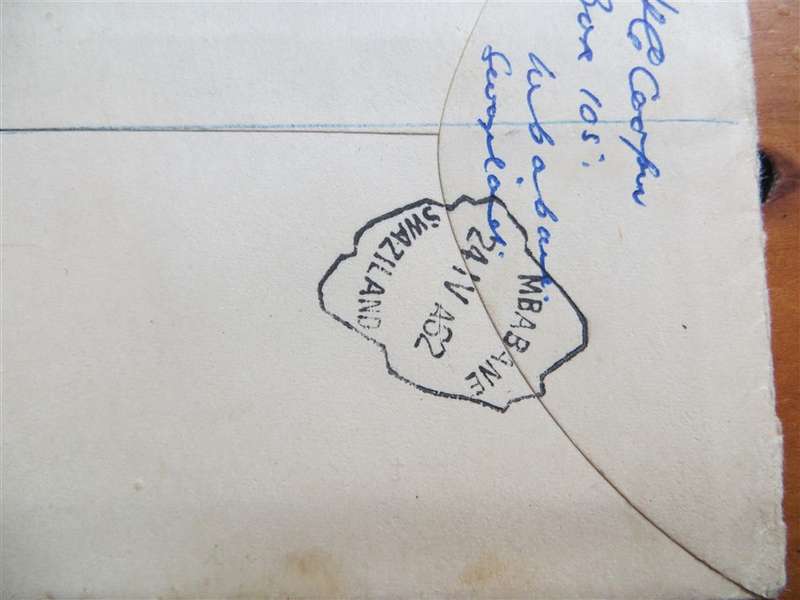 Cooper
Box 105.
Mbabane
Swaziland.
MBABANE
24 IV A62
SWAZILAND